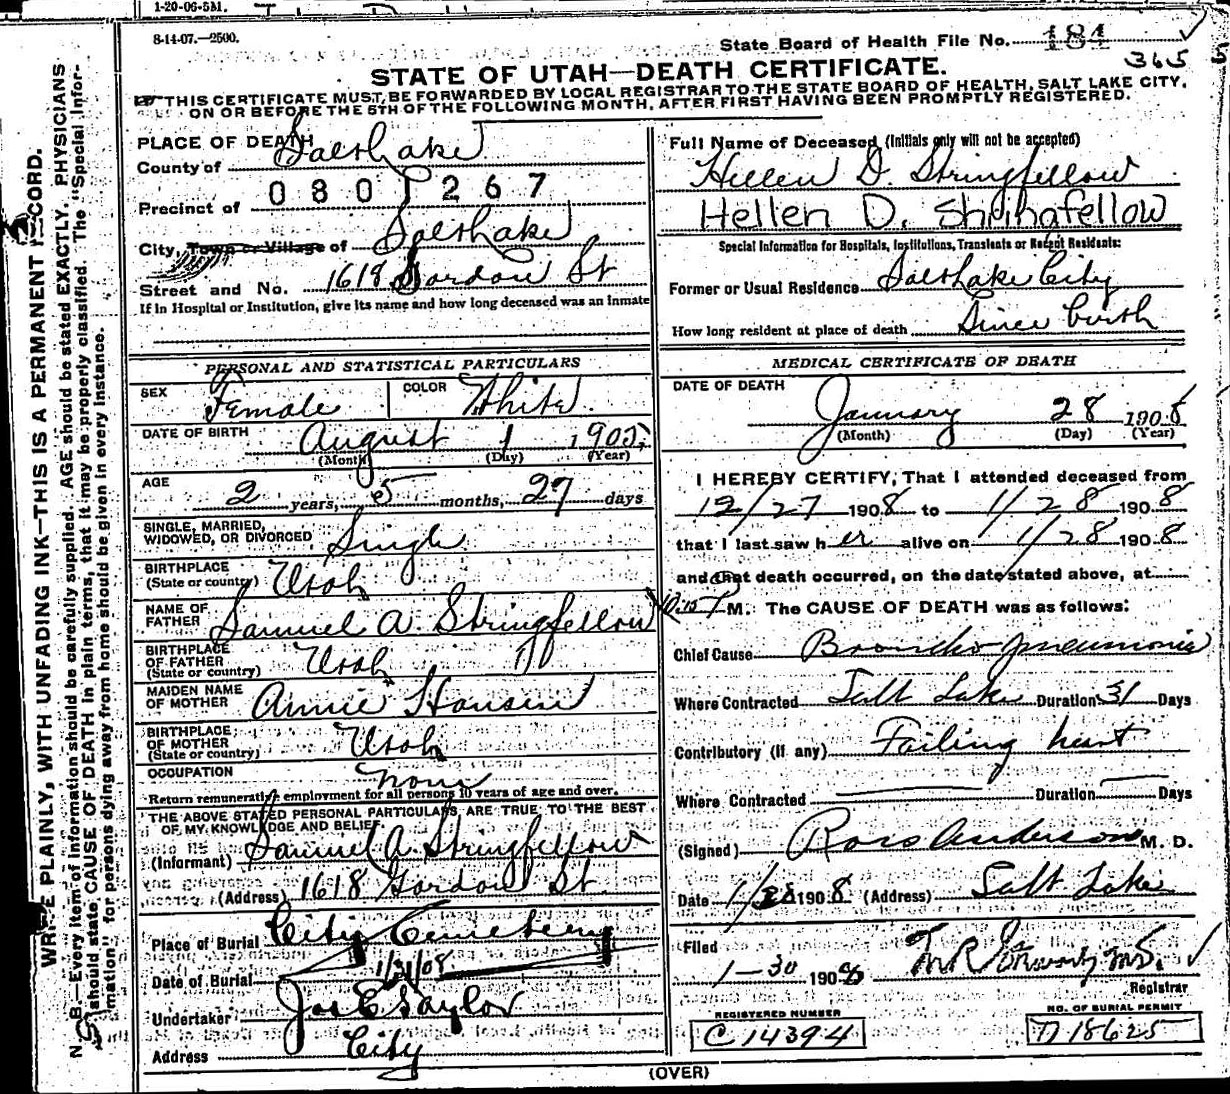 1-20-06-5M.
8-14-07.—2500.
State Board of Health File No. 184
365
STATE OF UTAH—DEATH CERTIFICATE.
THIS CERTIFICATE MUST BE FORWARDED BY LOCAL REGISTRAR TO THE STATE BOARD OF HEALTH, SALT LAKE CITY,
ON OR BEFORE THE 5TH OF THE FOLLOWING MONTH, AFTER FIRST HAVING BEEN PROMPTLY REGISTERED.
WRITE PLAINLY, WITH UNFADING INK—THIS IS A PERMANENT RECORD.
N. B.—Every item of information should be carefully supplied. AGE should be stated EXACTLY. PHYSICIANS
should state CAUSE OF DEATH in plain terms, that it may be properly classified. The "Special Infor-
mation" for persons dying away from home should be given in every instance.
PLACE OF DEATH
County of Salt Lake
0801267
Precinct of
City, Town or Village of Salt Lake
Street and No. 1618 Gordon St
If in Hospital or Institution, give its name and how long deceased was an inmate
Full Name of Deceased (Initials only will not be accepted)
Hellen D. Stringfellow
Hellen D. Stringfellow
Special Information for Hospitals, Institutions, Transients or Recent Residents:
Former or Usual Residence Salt Lake City
How long resident at place of death Since birth
PERSONAL AND STATISTICAL PARTICULARS
SEX Female COLOR White
DATE OF BIRTH August 1, 1905
(Month) (Day) (Year)
AGE 2 years, 5 months, 27 days
SINGLE, MARRIED,
WIDOWED, OR DIVORCED Single
BIRTHPLACE
(State or country) Utah
NAME OF
FATHER Samuel A. Stringfellow
BIRTHPLACE
OF FATHER
(State or country) Utah
MAIDEN NAME
OF MOTHER Annie Hansen
BIRTHPLACE
OF MOTHER
(State or country) Utah
OCCUPATION None
Return remunerative employment for all persons 10 years of age and over.
THE ABOVE STATED PERSONAL PARTICULARS ARE TRUE TO THE BEST
OF MY KNOWLEDGE AND BELIEF.
(Informant) Samuel A. Stringfellow
(Address) 1618 Gordon St.
Place of Burial City Cemetery
Date of Burial 1/31/08
Undertaker Jos E Taylor
Address City
MEDICAL CERTIFICATE OF DEATH
DATE OF DEATH
January 28 1908
(Month) (Day) (Year)
I HEREBY CERTIFY, That I attended deceased from
12/27 1908 to 1/28 1908
that I last saw her alive on 1/28 1908
and that death occurred, on the date stated above, at
10:15 P M. The CAUSE OF DEATH was as follows:
Chief Cause Broncho pneumonia
Where Contracted Salt Lake Duration 31 Days
Contributory (if any) Failing heart
Where Contracted Duration Days
(Signed) Ross Anderson M. D.
Date 1/28 1908 (Address) Salt Lake
Filed
1-30 1908
Registrar
REGISTERED NUMBER
C 14394
NO. OF BURIAL PERMIT
D 18625
(OVER)